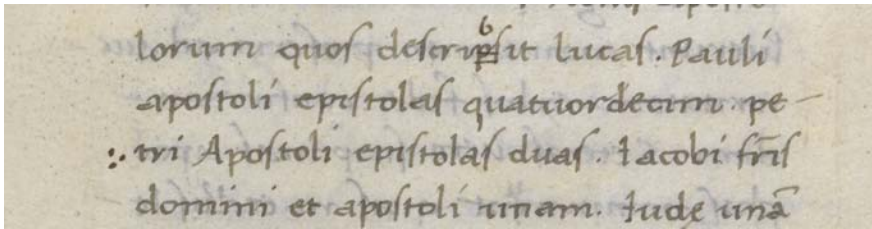 lorum quos descripsit lucas. Pauli
apostoli epistolas quatuordecim. pe-
tri Apostoli epistolas duas. Iacobi fr̄is
domini et apostoli unam. Iudę unā